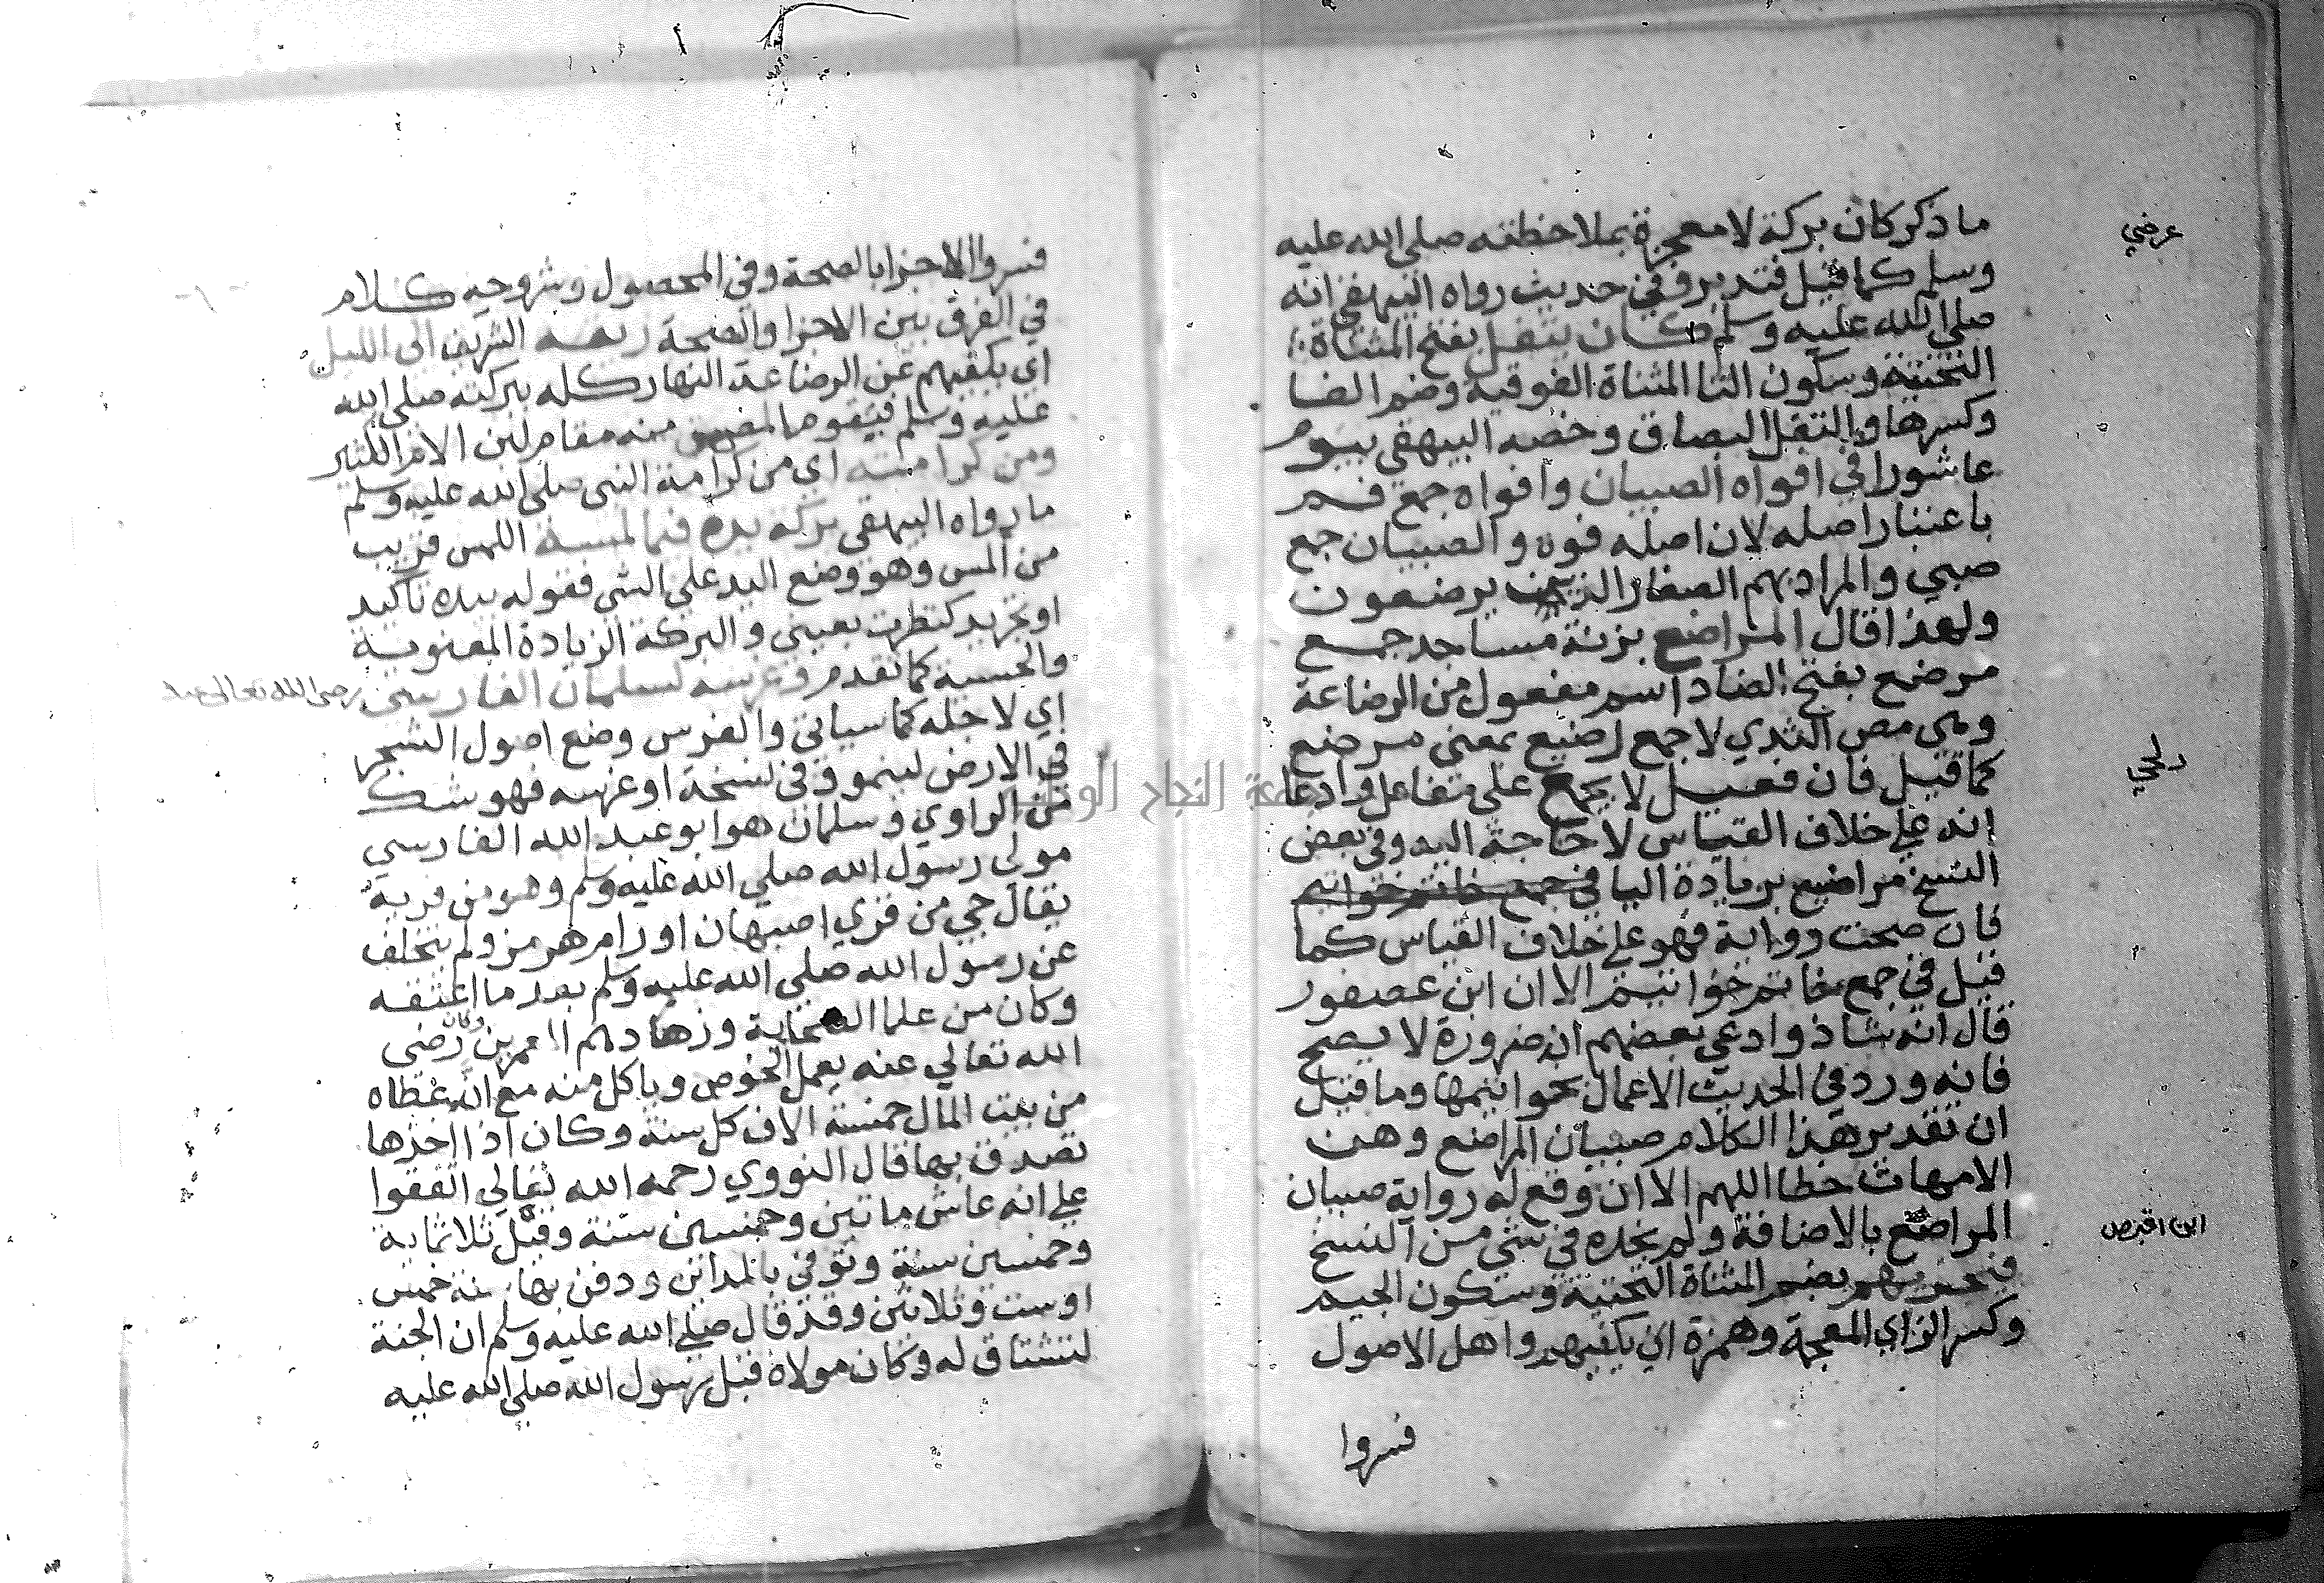 ما ذكر كان بركة لا معجزة بملاحظته صلي الله عليه
عرضي
وسلم كما قيل فتدبر وفي حديث رواه البيهقي انه
صلي الله عليه وسلم كان يتفل بفتح المثناة
التحتية وسكون التا المثناة الفوقية وضم الفا
وكسرها والتفل البصاق وخصه البيهقي بيوم
عاشورا في افواه الصبيان وافواه جمع فم
باعتبار اصله لان اصله فوه والصبيان جمع
صبي والمراد بهم الصغار الذين يرضعون
ولهذا قال المراضع بزنة مساجد جمع
مرضع بفتح الضاد اسم مفعول من الرضاعة
وهي مص الثدي لا جمع رضيع بمعنى مرضع
دلجي
كما قيل فان فعيل لا يجمع علي مفاعل وادعا
انه علي خلاف القياس لا حاجة اليه وفي بعض
النسخ مراضيع بزيادة اليا في جمع خاتم خواتيم
فان صحت رواية فهو علي خلاف القياس كما
قيل في جمع خاتم خواتيم الا ان ابن عصفور
قال انه شاذ وادعي بعضهم انه ضرورة لا يصح
فانه ورد في الحديث الاعمال بخواتيمها وما قيل
ان تقدير هذا الكلام صبيان المراضع وهن
الامهات خطا اللهم الا ان وقع له رواية صبيان
المراضع بالاضافة ولم نجده في شي من النسخ
ابن اقبرص
فيجزيهم بضم المثناة التحتية وسكون الجيم
وكسر الزاي المعجمة وهمزة اي يكفيهم واهل الاصول
فسروا
فسروا الاجزا بالصحة وفي المحصول وشروحه كلام
في الفرق بين الاجزا والصحة ريقه الشريف الى الليل
اي يكفيهم عن الرضاعة النهار كله ببركته صلى الله
عليه وسلم فيقوم المصه منه مقام لبن الام الكثير
ومن كرامته اي من كرامة النبي صلى الله عليه وسلم
ما رواه البيهقي بركة يده فيما لمسه اللمس قريب
من المس وهو وضع اليد على الشي فقوله بيده تاكيد
او تجريد كنظرت بعيني والبركة الزيادة المعنوية
والحسية كما تقدم وغرسه لسلمان الفارسي رضى الله تعالى عنه
اي لاجله كما سياتي والغرس وضع اصول الشجر
في الارض لينمو وفي نسخة او غرسه فهو شك
من الراوي وسلمان هو ابو عبد الله الفارسي
مولى رسول الله صلي الله عليه وسلم وهو من قرية
يقال جي من قري اصبهان او رامهرمز ولم يتخلف
عن رسول الله صلى الله عليه وسلم بعد ما اعتقه
وكان من علما الصحابة وزهادهم المعمرين وكان رضى
الله تعالي عنه يعمل الخوص وياكل منه مع ان عطاه
من بيت المال خمسة الاف كل سنة وكان اذا اخذها
تصدق بها قال النووي رحمه الله تعالي اتفقوا
علي انه عاش ماتين وخمسين سنة وقيل ثلاثماية
وخمسين سنة وتوفي بالمداين ودفن بها سنة خمس
اوست وثلاثين وقد قال صلي الله عليه وسلم ان الجنة
لتشتاق له وكان مولاه قبل رسول الله صلي الله عليه